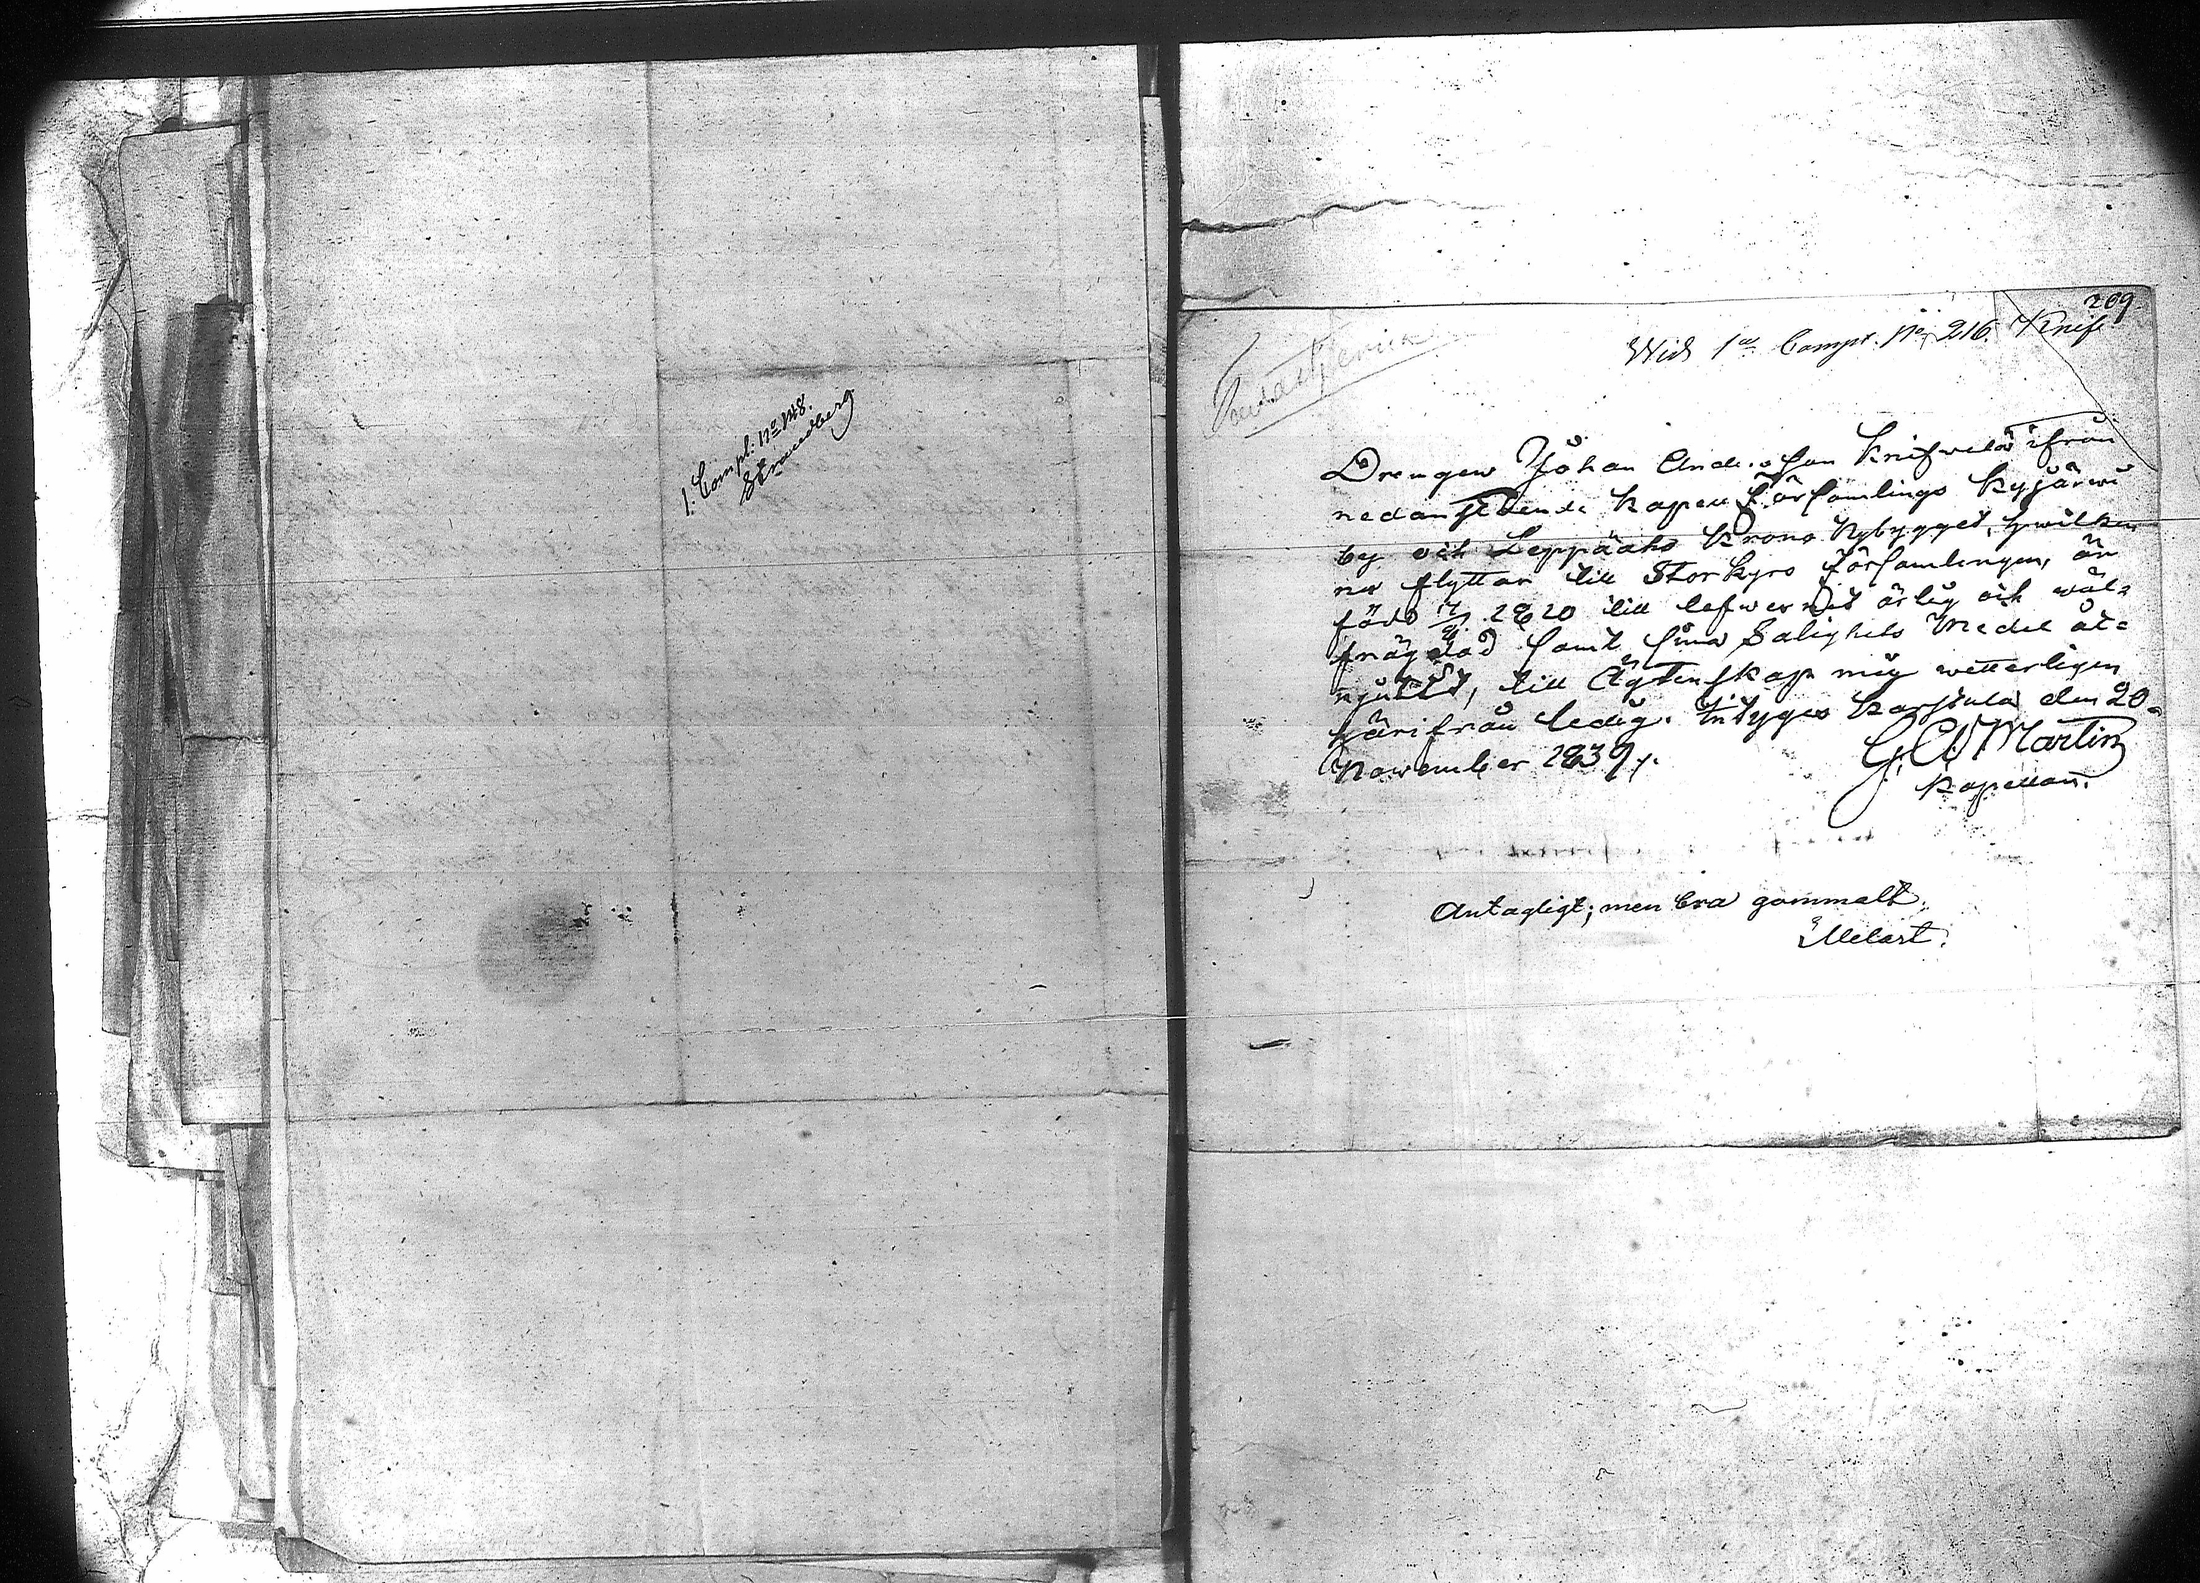 1. Compl. No 148.
Strandberg
209
Wid 1sta Comp. No 216. Knif
Drengen Johan Andersson Knifvelä ifrån
nedanstående Kapell Församlings Kyjärwi
by och Leppäaho Krono Nybygget, hwilken
nu flyttar till Storkyro Församlingen, är
född 1820 till lefwernet ärlig och wäl-
frägdad samt sina Salighets Medel åt-
njutit, till Ägtenskap mig wetterligen
härifrån ledig. Intygar Karstula den 20
November 1839.
G. A. Martin
Kapellan.
Antagligt; men bra gammalt.
Melart.